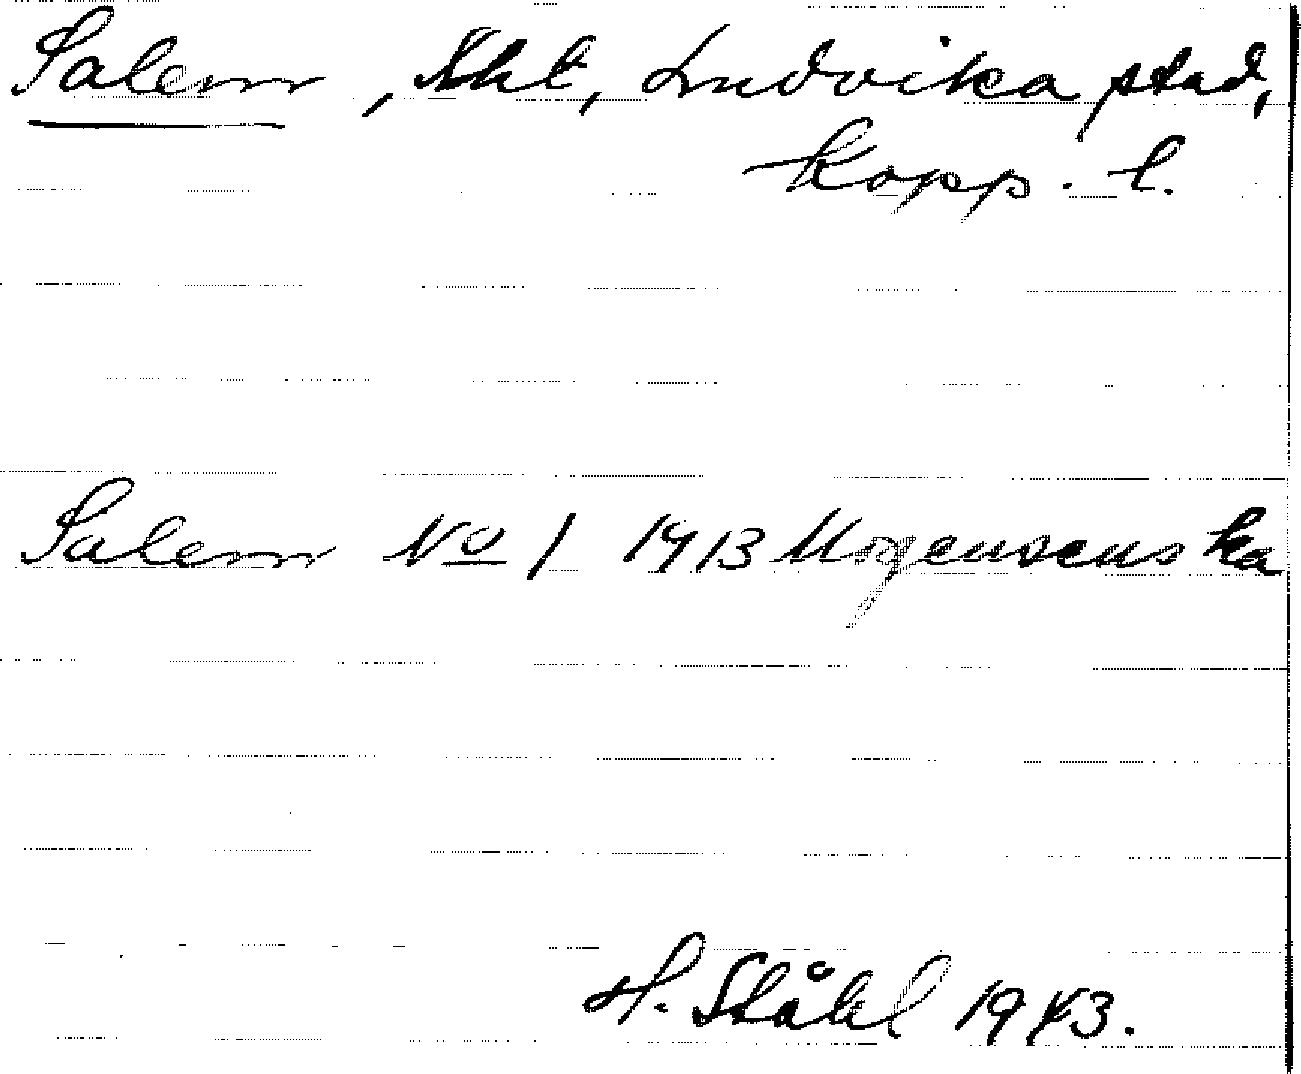 Salem, Skt, Ludvika stad,
Kopp. l.
Salem No 1 1913 Mogensenska
H. Ståhl 1943.